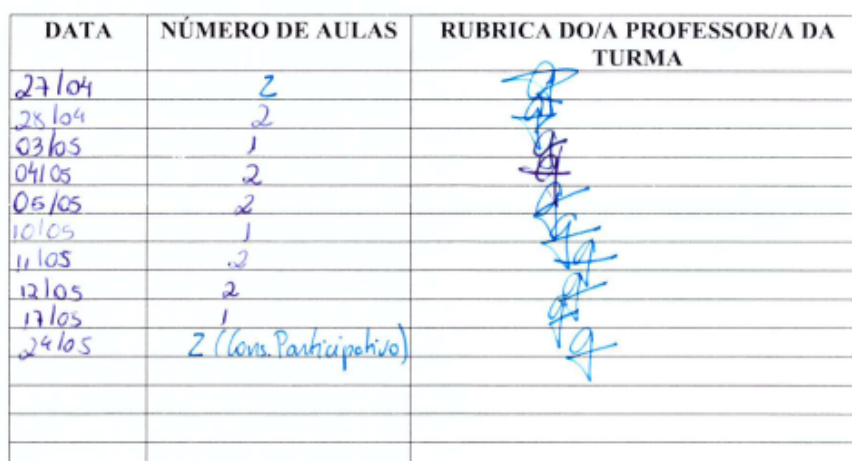 DATA NÚMERO DE AULAS RUBRICA DO/A PROFESSOR/A DA TURMA
27/04 2
28/04 2
03/05 1
04/05 2
05/05 2
10/05 1
11/05 2
12/05 2
17/05 1
24/05 2 (Cons. Participativo)